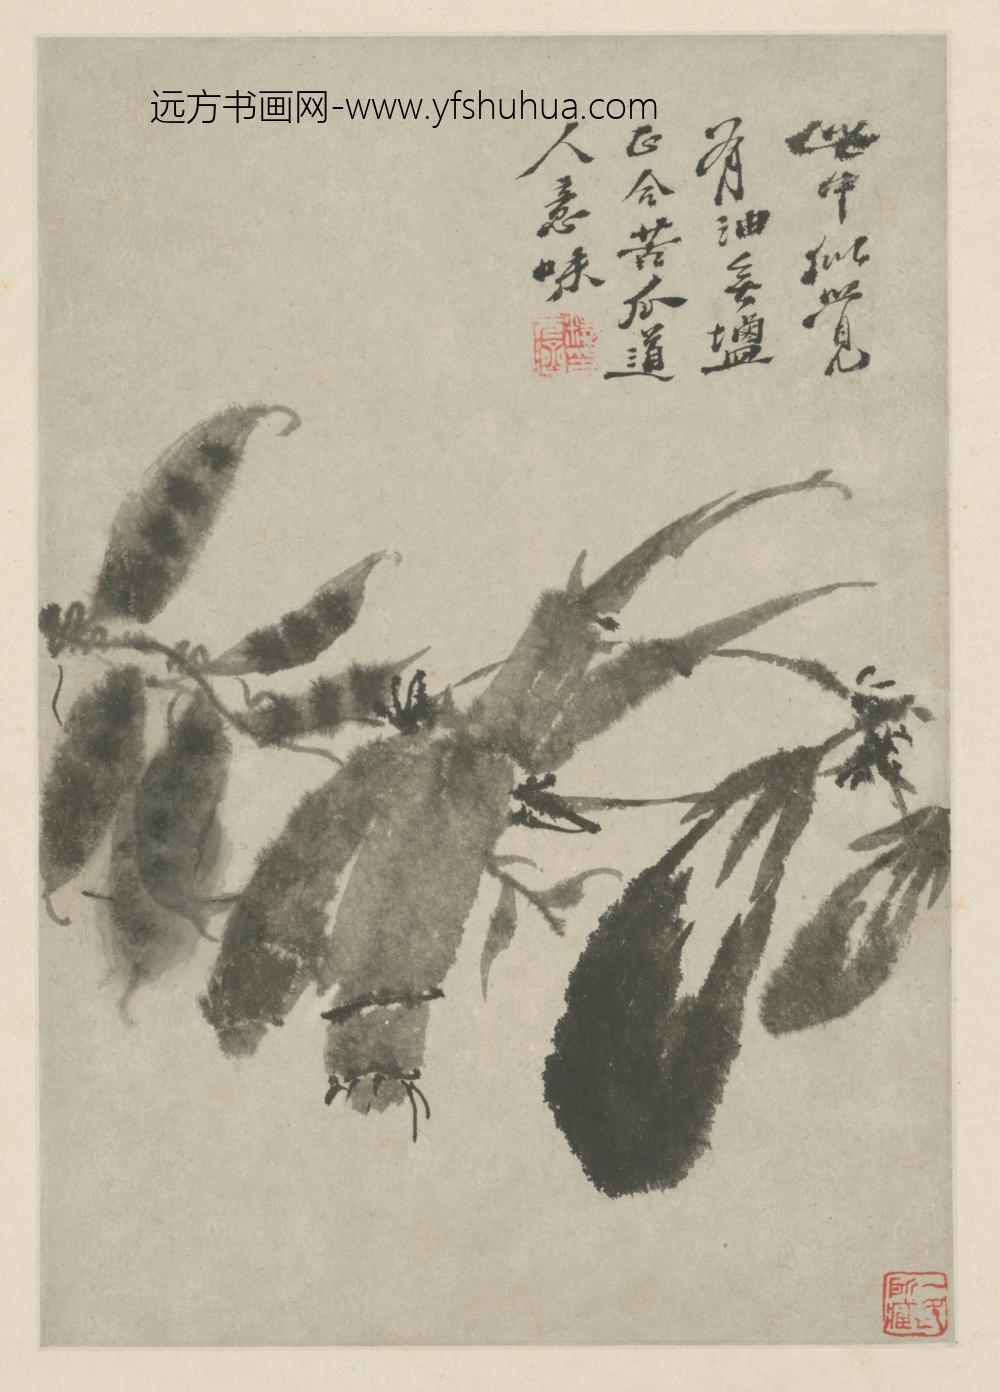 远方书画网-www.yfshuhua.com
此中似觉
有油无塩
正合苦瓜道
人意味